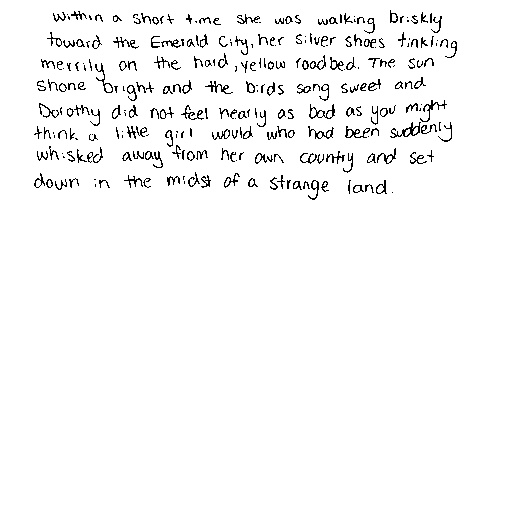 Within a short time she was walking briskly
toward the Emerald City, her silver shoes tinkling
merrily on the hard, yellow roadbed. The sun
shone bright and the birds song sweet and
Dorothy did not feel nearly as bad as you might
think a little girl would who had been suddenly
whisked away from her own country and set
down in the midst of a strange land.